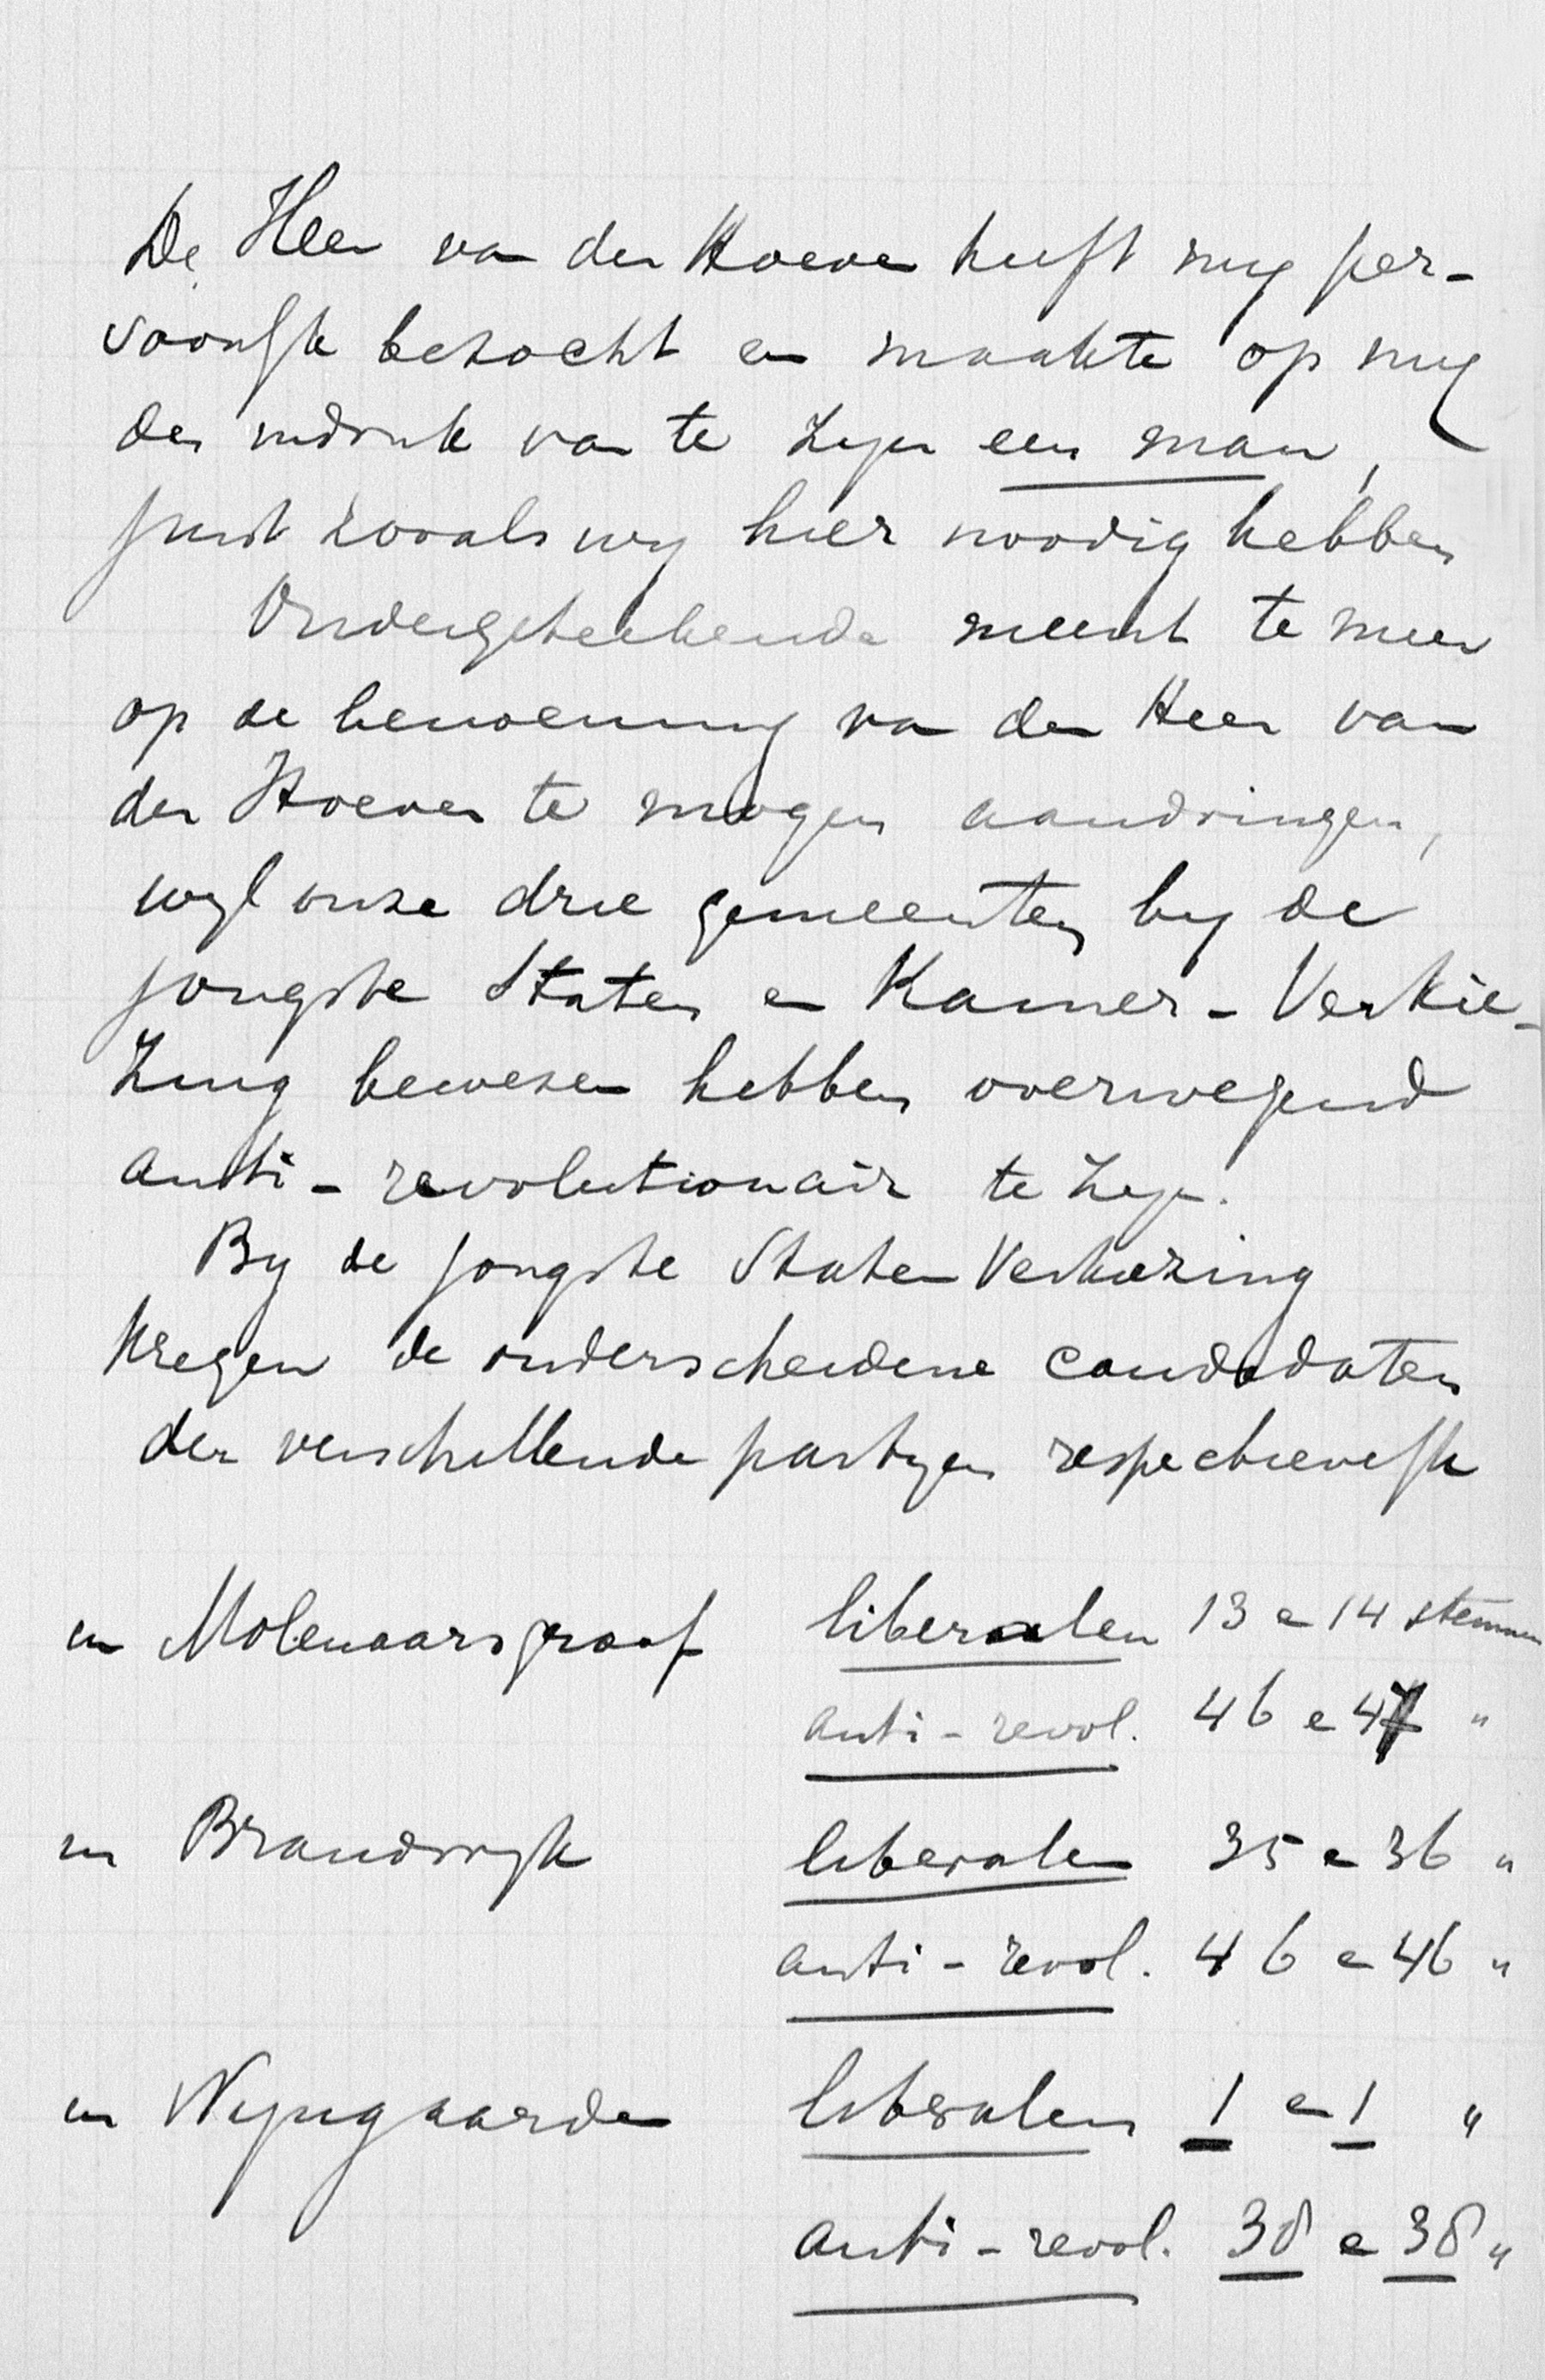 De Heer van der Hoeven heeft my per-
soonlyk bezocht en maakte op my
den indruk van te zyn een man,
juist zooals wy hier noodig hebben
Ondergeteekende meent te meer
op de benoeming van den Heer van
der Hoeven te mogen aandringen,
wyl onze drie gemeenten by de
jongste Staten en Kamer-Verkie-
zing bewezen hebben overwegend
anti-revolutionair te zyn.
By de jongste Staten Verkiezing
kregen de onderscheidene candidaten
der verschillende partyen respectievelyk
in Molenaarsgraaf liberalen 13 en 14 stemmen
anti-revol. 46 en 47 "
in Brandwyk liberalen 35 en 36 "
anti-revol. 46 en 46 "
in Wyngaarden liberalen 1 en 1 "
anti-revol. 38 en 38 "